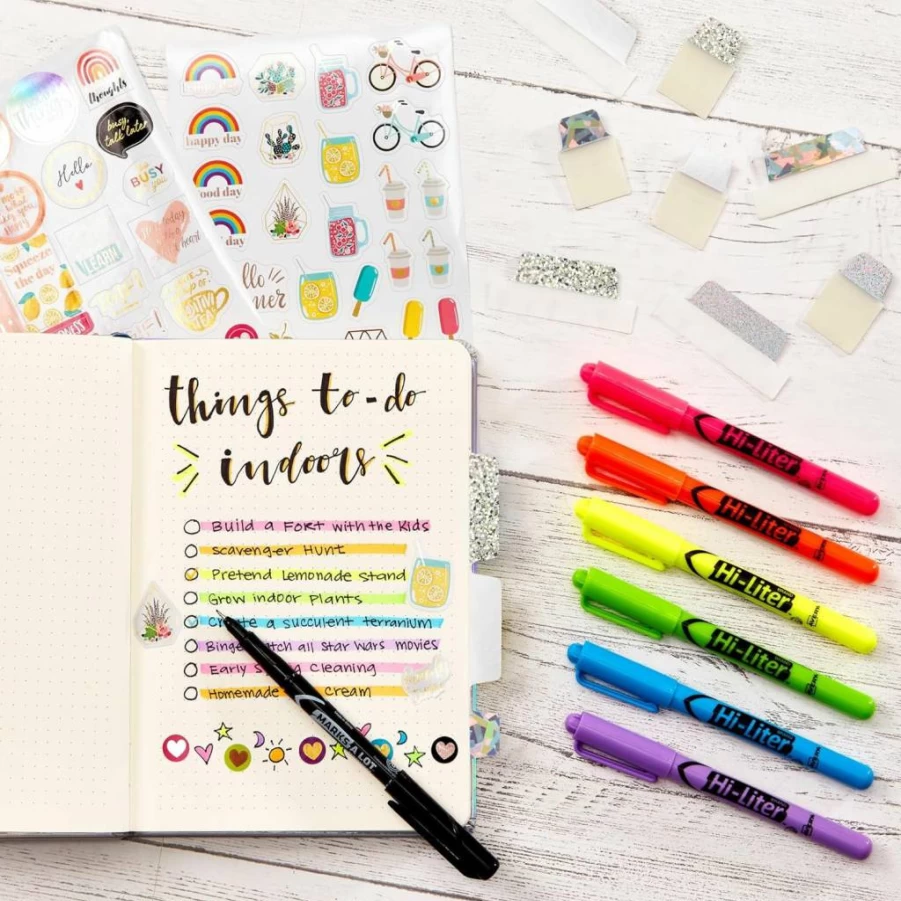 thoughts
busy,
talk later
Hello
BUSY
LEARN
Squeeze
the day
happy day
good day
day
things to-do
indoors
Build a Fort with the Kids
Scavenger Hunt
Pretend Lemonade Stand
Grow indoor Plants
Create a succulent terrarium
Binge all Star Wars movies
Early Cleaning
Homemade Cream
MARKS-A-LOT
Hi-Liter
Hi-Liter
Hi-Liter
Hi-Liter
Hi-Liter
Hi-Liter